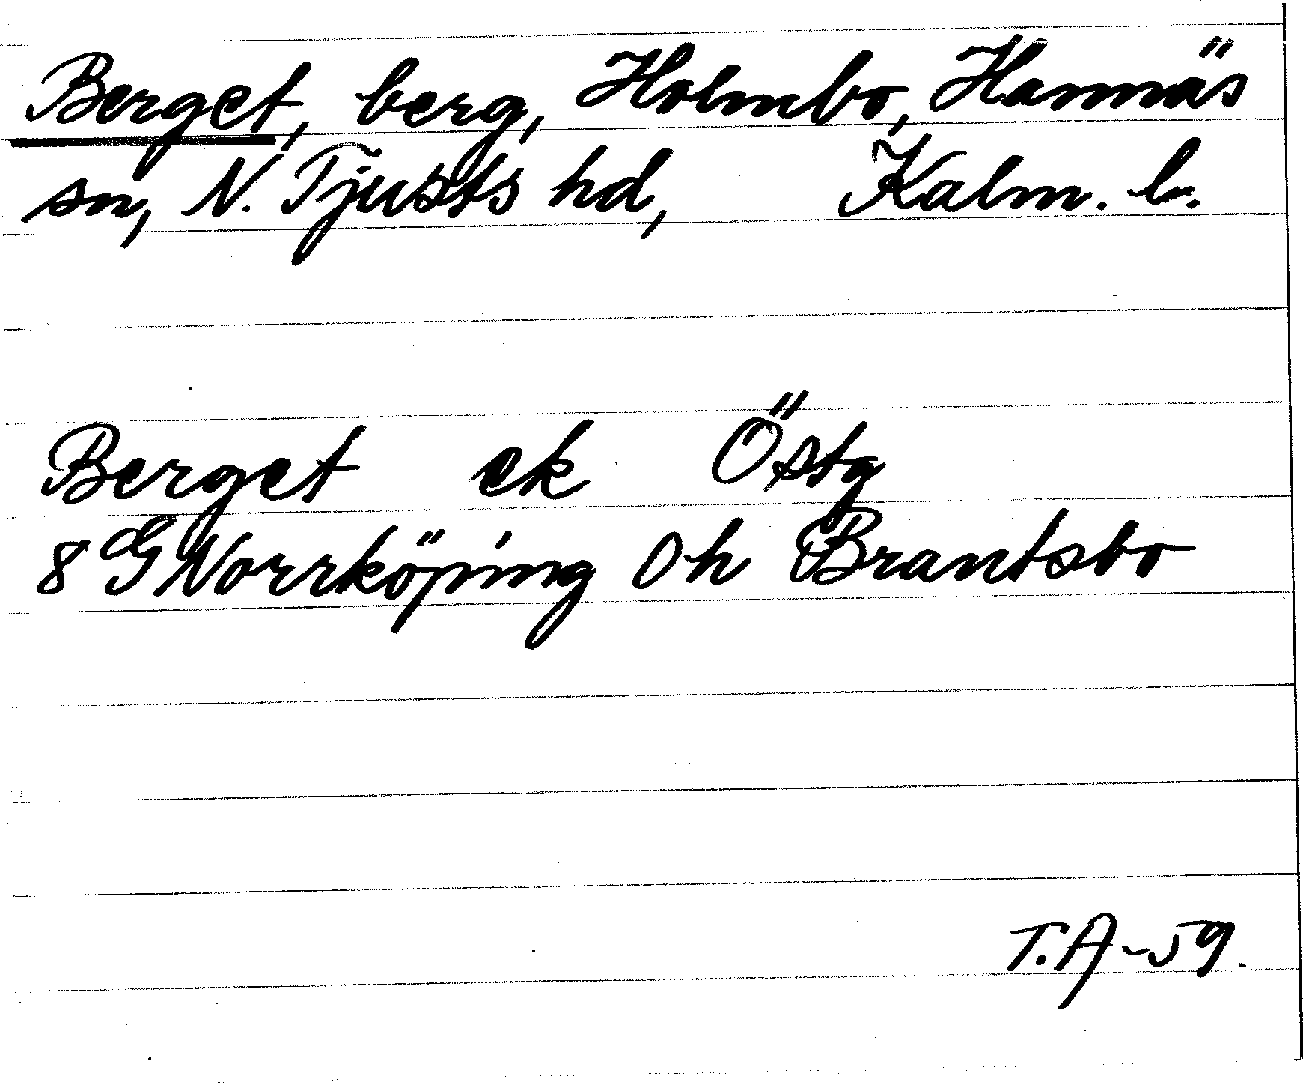 Berget, berg, Holmbo, Hannäs
sn, N. Tjusts hd, Kalm. l.
Berget ek Östg
8 G Norrköping Oh Brantsbo
T.A-59.